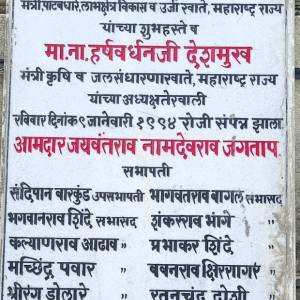 मंत्री, पाटबंधारे, लाभक्षेत्र विकास व उर्जा खाते, महाराष्ट्र राज्य
यांच्या शुभहस्ते व
मा.ना. हर्षवर्धनजी देशमुख
मंत्री कृषि व जलसंधारण खाते, महाराष्ट्र राज्य
यांच्या अध्यक्षतेखाली
रविवार दिनांक ९ जानेवारी १९९४ रोजी संपन्न झाला
आमदार जयवंतराव नामदेवराव जगताप
सभापती
संदिपान बारकुंड उपसभापती भागवतराव बागल सभासद
भगवानराव शिंदे सभासद शंकरराव भांगे "
कल्याणराव आढाव " प्रभाकर शिंदे "
मच्छिंद्र पवार " बबनराव क्षिरसागर "
श्रीरंग डोलारे " रतनचंद दोशी "